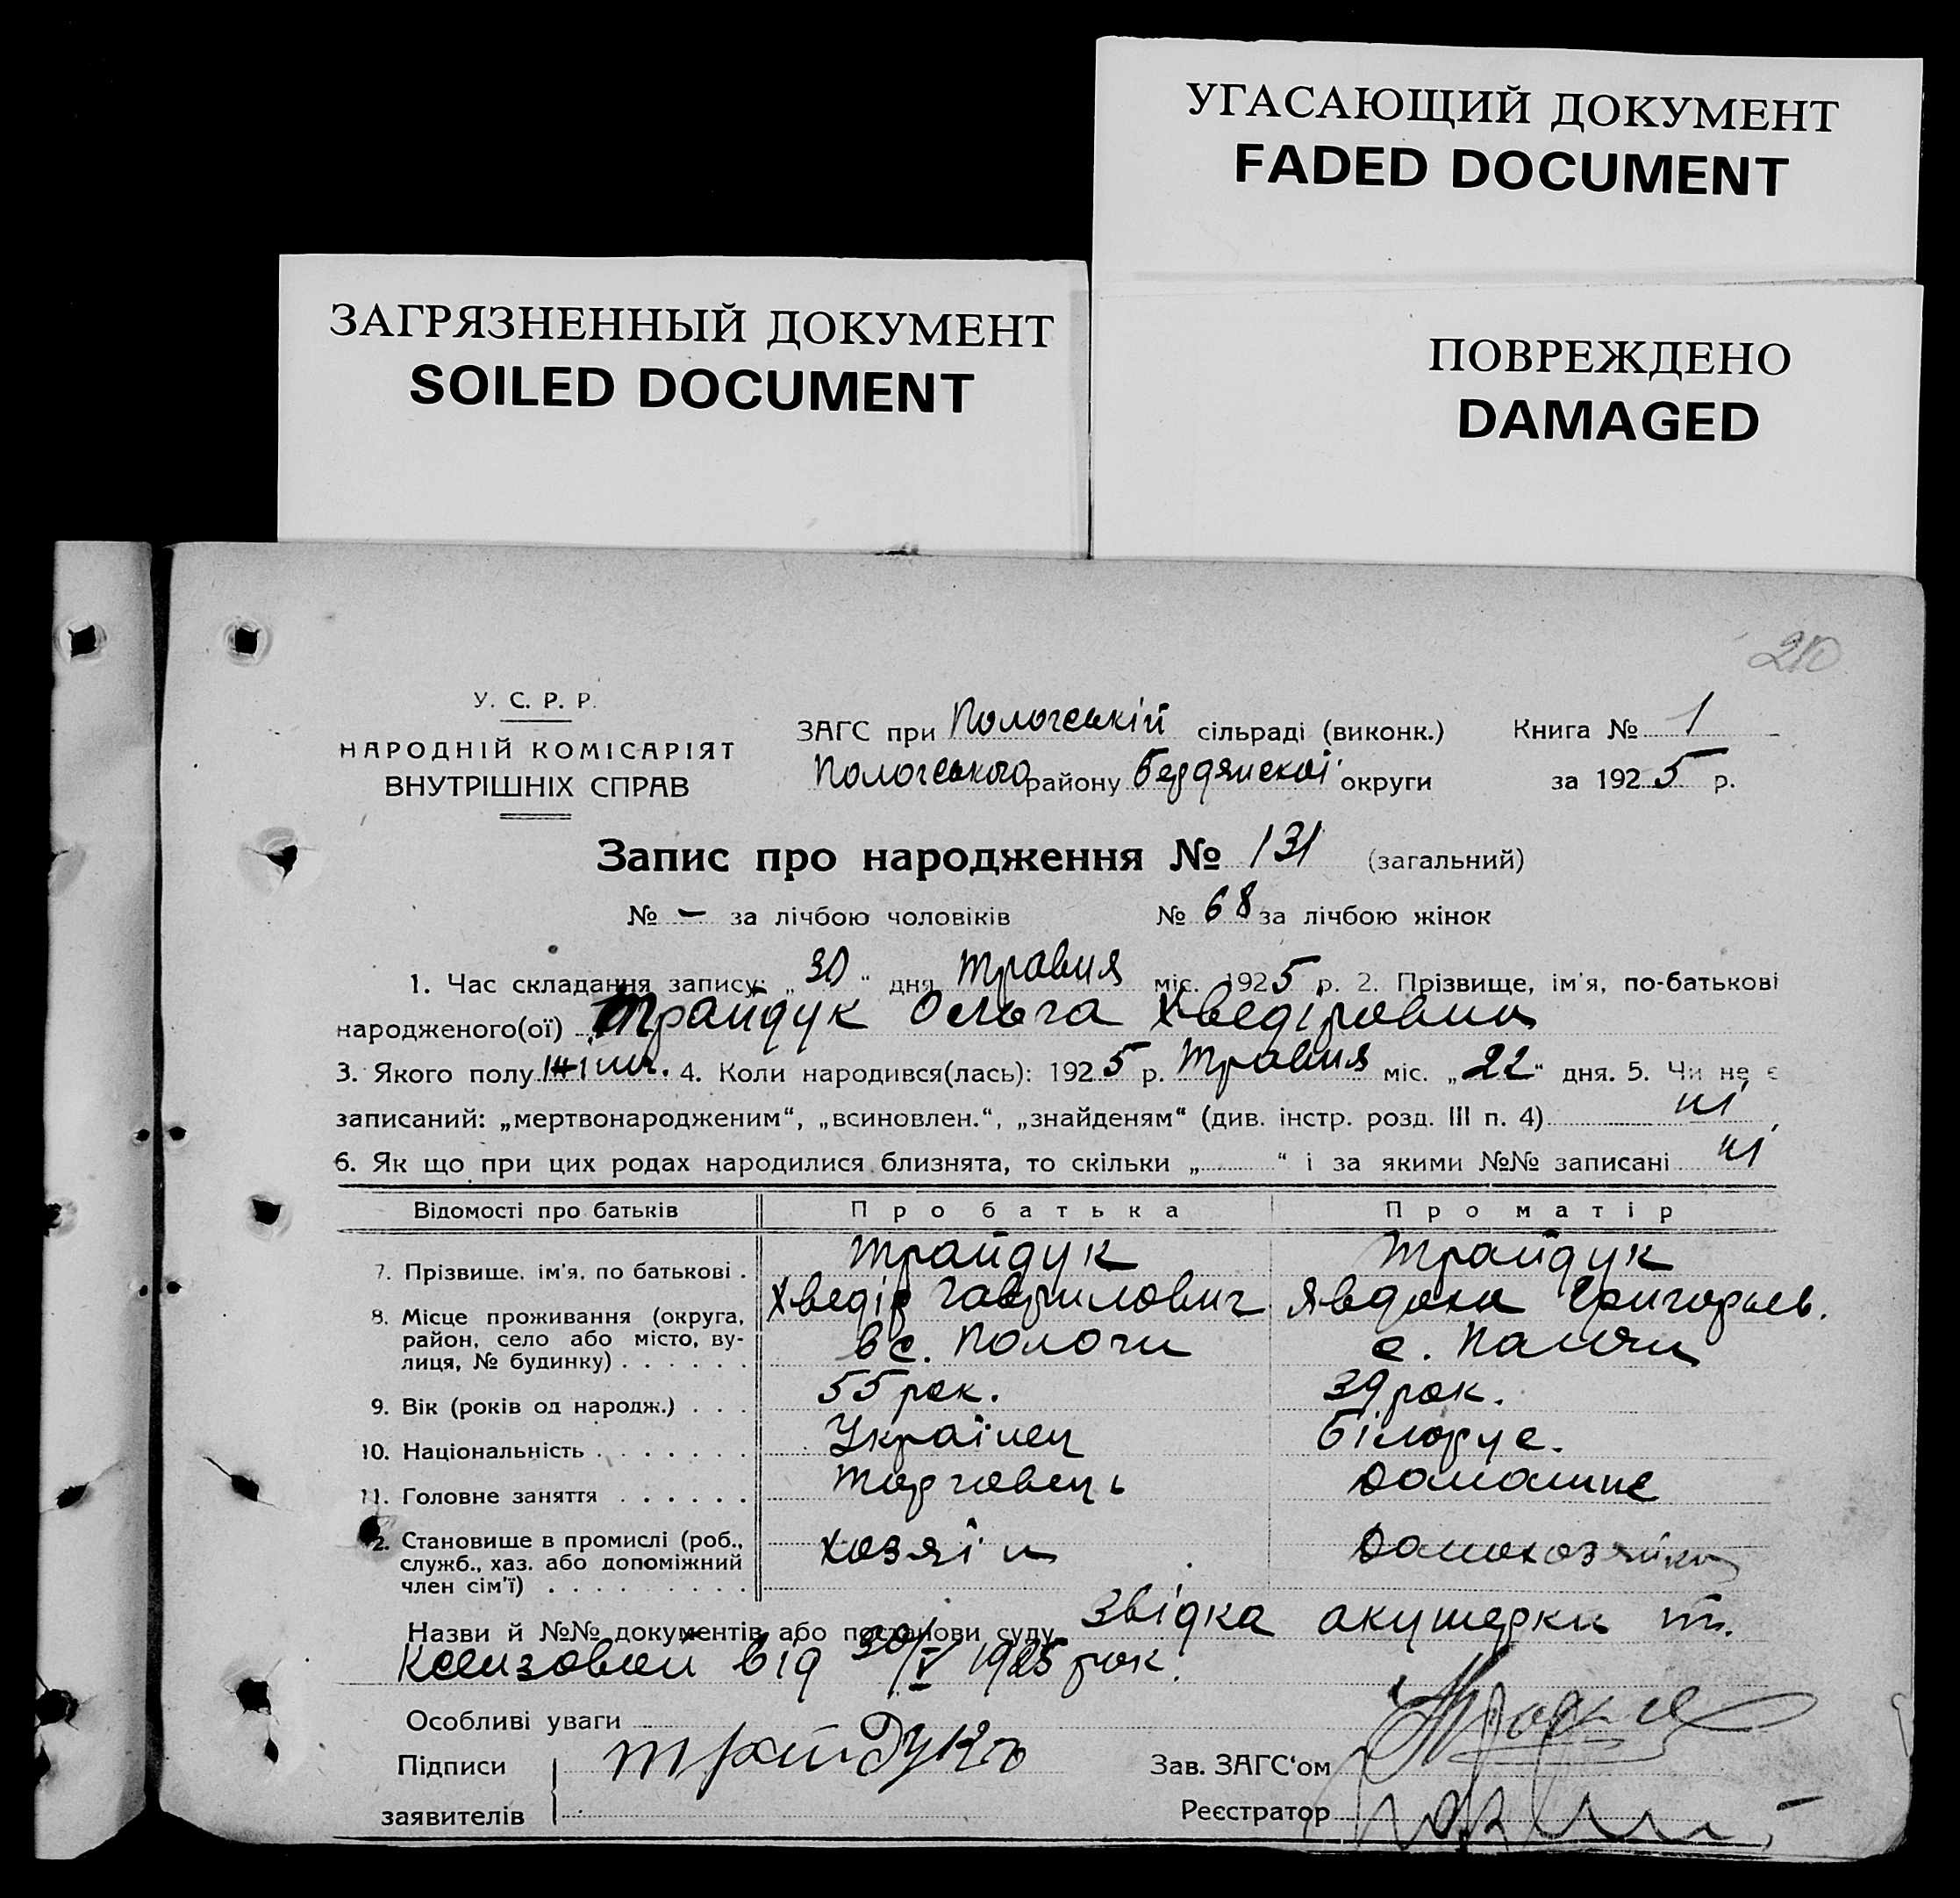 УГАСАЮЩИЙ ДОКУМЕНТ
FADED DOCUMENT
ЗАГРЯЗНЕННЫЙ ДОКУМЕНТ
SOILED DOCUMENT
ПОВРЕЖДЕНО
DAMAGED
210
У. С. Р. Р.
НАРОДНІЙ КОМІСАРІЯТ
ВНУТРІШНІХ СПРАВ
ЗАГС при Пологській сільраді (виконк.) Книга № 1
Пологського району Бердянської округи за 1925 р.
Запис про народження № 131 (загальний)
№ – за лічбою чоловіків № 68 за лічбою жінок
1. Час складання запису: „30“ дня травня міс. 1925 р. 2. Прізвище, ім'я, по-батькові
народженого(ої) Трайдук Ольга Хведіровна
3. Якого полу жін. 4. Коли народився(лась): 1925 р. Травня міс. „22“ дня. 5. Чи не є
записаний: „мертвонародженим“, „всиновлен.“, „знайденям“ (див. інстр. розд. III п. 4) ні
6. Як що при цих родах народилися близнята, то скільки „ “ і за якими №№ записані ні
Відомості про батьків Про батька Про матір
7. Прізвище, ім'я, по батькові . Трайдук Хведір Гаврилович Трайдук Явдоха Григорьев.
8. Місце проживання (округа,
район, село або місто, ву-
лиця, № будинку) . . . . . . в с. Пологи с. Пологи
9. Вік (років од народж.) . . . 55 рок. 39 рок.
10. Національність . . . . . . . Українец Білорус.
11. Головне заняття . . . . . . Торговець Домашнє
12. Становище в промислі (роб.,
служб., хаз. або допоміжний
член сім'ї) . . . . . . . . . хозяїн Домохозяйка
Назви й №№ документів або постанови суду Звідка акушерки
від 30/V 1925 рок.
Особливі уваги
Підписи Трайдукъ Зав. ЗАГС'ом
заявителів Реєстратор